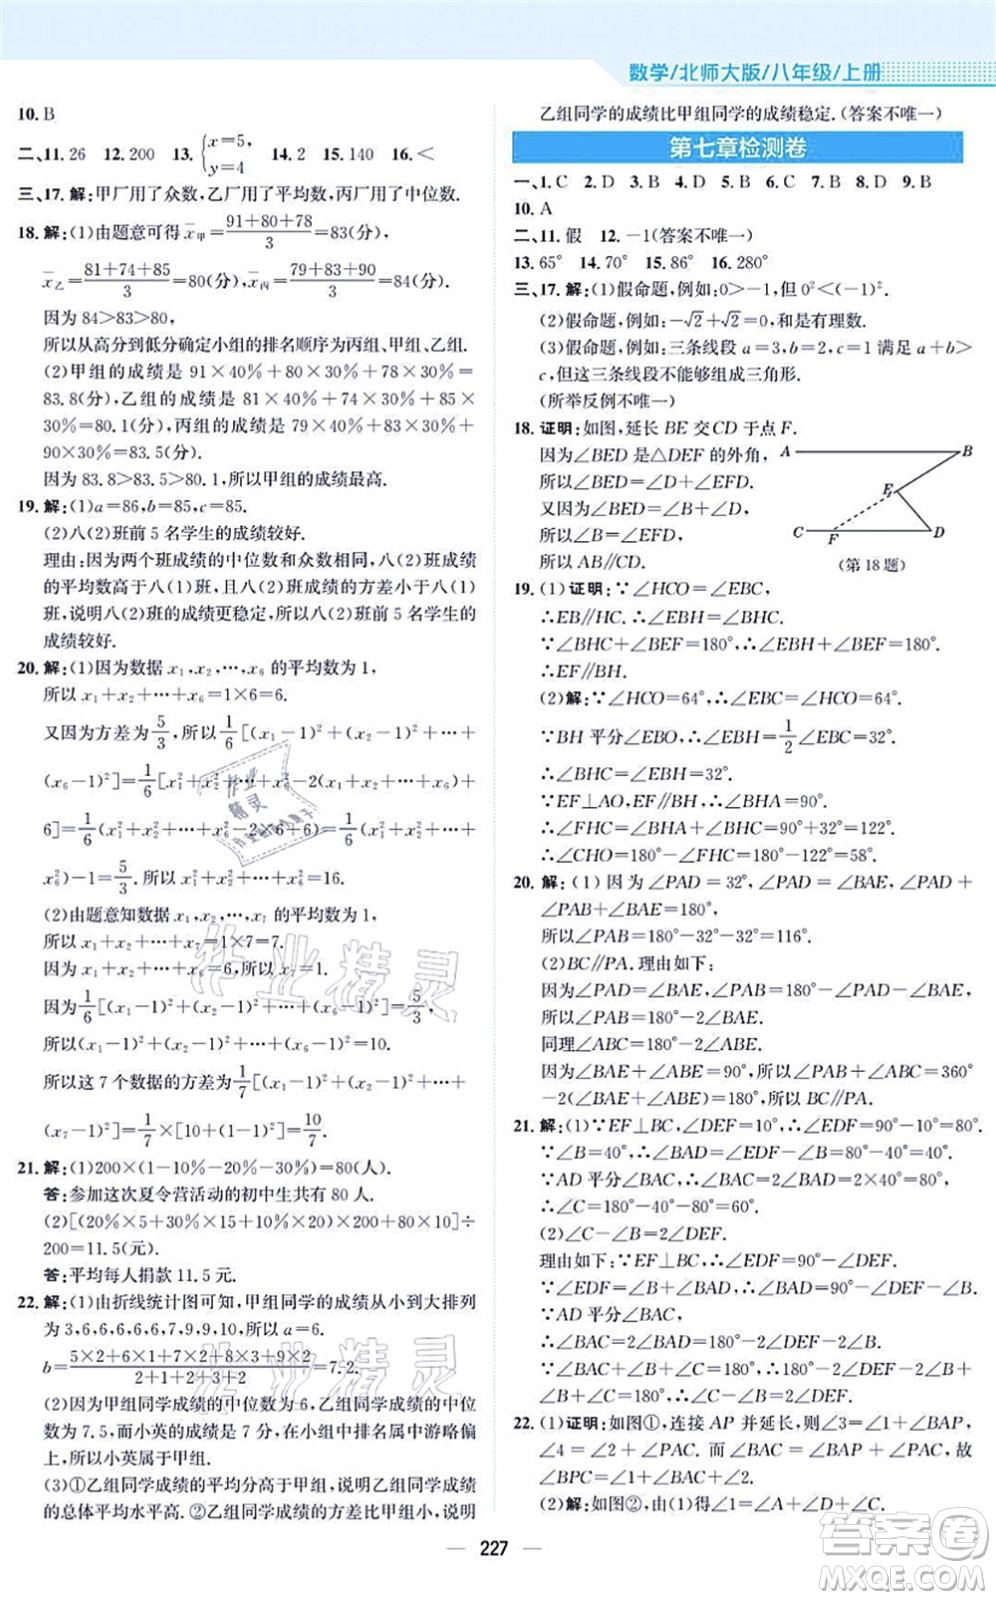 数学/北师大版/八年级/上册
10. B
二、11. 26 12. 200 13. {x=5, y=4 14. 2 15. 140 16. <
三、17. 解:甲厂用了众数,乙厂用了平均数,丙厂用了中位数.
18. 解:(1)由题意可得 x̄甲=(91+80+78)/3=83(分),
x̄乙=(81+74+85)/3=80(分),x̄丙=(79+83+90)/3=84(分).
因为 84>83>80,
所以从高分到低分确定小组的排名顺序为丙组、甲组、乙组.
(2)甲组的成绩是 91×40%+80×30%+78×30%=
83.8(分),乙组的成绩是 81×40%+74×30%+85×
30%=80.1(分),丙组的成绩是 79×40%+83×30%+
90×30%=83.5(分).
因为 83.8>83.5>80.1,所以甲组的成绩最高.
19. 解:(1)a=86,b=85,c=85.
(2)八(2)班前 5 名学生的成绩较好.
理由:因为两个班成绩的中位数和众数相同,八(2)班
的平均数高于八(1)班,且八(2)班的方差小于八(1)
班,说明八(2)班的成绩更稳定,所以八(2)班前 5 名学生的
成绩较好.
20. 解:(1)因为数据 x₁,x₂,…,x₆ 的平均数为 1,
所以 x₁+x₂+…+x₆=1×6=6.
又因为方差为 5/3,所以 1/6[(x₁−1)²+(x₂−1)²+…+
(x₆−1)²]=1/6[x₁²+x₂²+…+x₆²−2(x₁+x₂+…+x₆)+
6]=1/6(x₁²+x₂²+…+x₆²−2×6+6)=1/6(x₁²+x₂²+…+
x₆²)−1=5/3.所以 x₁²+x₂²+…+x₆²=16.
(2)由题意知数据 x₁,x₂,…,x₇ 的平均数为 1,
所以 x₁+x₂+…+x₇=1×7=7.
因为 x₁+x₂+…+x₆=6,所以 x₇=1.
因为 1/6[(x₁−1)²+(x₂−1)²+…+(x₆−1)²]=5/3,
所以(x₁−1)²+(x₂−1)²+…+(x₆−1)²=10.
所以这 7 个数据的方差为 1/7[(x₁−1)²+(x₂−1)²+…+
(x₇−1)²]=1/7×[10+(1−1)²]=10/7.
21. 解:(1)200×(1−10%−20%−30%)=80(人).
答:参加这次夏令营活动的初中生共有 80 人.
(2)[(20%×5+30%×15+10%×20)×200+80×10]÷
200=11.5(元).
答:平均每人捐款 11.5 元.
22. 解:(1)由折线统计图可知,甲组同学的成绩从小到大排列
为 3,6,6,6,6,6,7,9,9,10,所以 a=6.
b=(5×2+6×1+7×2+8×3+9×2)/(2+1+2+3+2)=7.2.
(2)因为甲组同学成绩的中位数为 6,乙组同学成绩的中位
数为 7.5,而小英的成绩是 7 分,在小组排名中属中游略偏
上,所以小英属于甲组.
(3)①乙组同学成绩的平均分高于甲组,说明乙组同学成绩
的总体平均水平高. ②乙组同学的方差比甲组小,说明
乙组同学的成绩比甲组同学的成绩稳定.(答案不唯一)
第七章检测卷
一、1. C 2. D 3. B 4. D 5. B 6. C 7. B 8. D 9. B
10. A
二、11. 假 12. −1(答案不唯一)
13. 65° 14. 70° 15. 86° 16. 280°
三、17. 解:(1)假命题,例如:0>−1,但 0²<(−1)².
(2)假命题,例如:−√2+√2=0,和是有理数.
(3)假命题,例如:三条线段 a=3,b=2,c=1 满足 a+b>
c,但这三条线段不能够组成三角形.
(所举反例不唯一)
18. 证明:如图,延长 BE 交 CD 于点 F.
因为∠BED 是△DEF 的外角,
所以∠BED=∠D+∠EFD.
又因为∠BED=∠B+∠D,
所以∠B=∠EFD.
所以 AB∥CD.
A B E C F D
(第 18 题)
19. (1)证明:∵∠HCO=∠EBC,
∴EB∥HC.∴∠EBH=∠BHC.
∵∠BHC+∠BEF=180°,∴∠EBH+∠BEF=180°.
∴EF∥BH.
(2)解:∵∠HCO=64°,∴∠EBC=∠HCO=64°.
∵BH 平分∠EBO,∴∠EBH=1/2∠EBC=32°.
∴∠BHC=∠EBH=32°.
∵EF⊥AO,EF∥BH,∴∠BHA=90°.
∴∠FHC=∠BHA+∠BHC=90°+32°=122°.
∴∠CHO=180°−∠FHC=180°−122°=58°.
20. 解:(1)因为∠PAD=32°,∠PAD=∠BAE,∠PAD+
∠PAB+∠BAE=180°,
所以∠PAB=180°−32°−32°=116°.
(2)BC∥PA.理由如下:
因为∠PAD=∠BAE,∠PAB=180°−∠PAD−∠BAE,
所以∠PAB=180°−2∠BAE.
同理∠ABC=180°−2∠ABE.
因为∠BAE+∠ABE=90°,所以∠PAB+∠ABC=360°
−2(∠BAE+∠ABE)=180°,所以 BC∥PA.
21. 解:(1)∵EF⊥BC,∠DEF=10°,∴∠EDF=90°−10°=80°.
∵∠B=40°,∴∠BAD=∠EDF−∠B=80°−40°=40°.
∵AD 平分∠BAC,∴∠BAC=2∠BAD=80°.
∴∠C=180°−40°−80°=60°.
(2)∠C−∠B=2∠DEF.
理由如下:∵EF⊥BC,∴∠EDF=90°−∠DEF.
∵∠EDF=∠B+∠BAD,∴∠BAD=90°−∠DEF−∠B.
∵AD 平分∠BAC,
∴∠BAC=2∠BAD=180°−2∠DEF−2∠B.
∵∠BAC+∠B+∠C=180°,
∴180°−2∠DEF−2∠B+∠B+∠C=180°.
∴∠C−∠B=2∠DEF.
22. (1)证明:如图①,连接 AP 并延长,则∠3=∠2+∠PAB,
∠4=∠2+∠PAC. 而∠BPC=∠3+∠4,∠BAC=∠PAB+∠PAC,故
∠BPC=∠BAC+∠1+∠2.
(2)解:如图②,由(1)得∠1+∠2=
227
作业精灵
作业精灵
作业精灵
答案卷
MXQE.COM